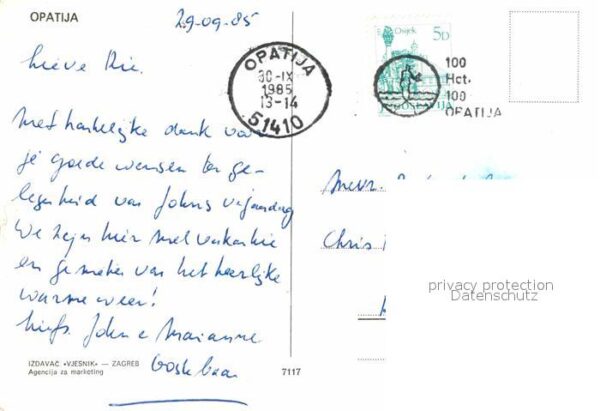 OPATIJA
29-09-'85
Lieve Rie.
Met hartelijke dank voor
je goede wensen ter ge-
legenheid van Johns verjaardag
We zijn hier met vakantie
en genieten van het heerlijke
warme weer!
liefs. John e Marianne
IZDAVAČ »VJESNIK« — ZAGREB
Agencija za marketing
7117
OPATIJA
30-IX
1985
13-14
51410
Osijek
5D
JUGOSLAVIJA
100
Hct.
100
OPATIJA
Mevr.
Chris
privacy protection
Datenschutz